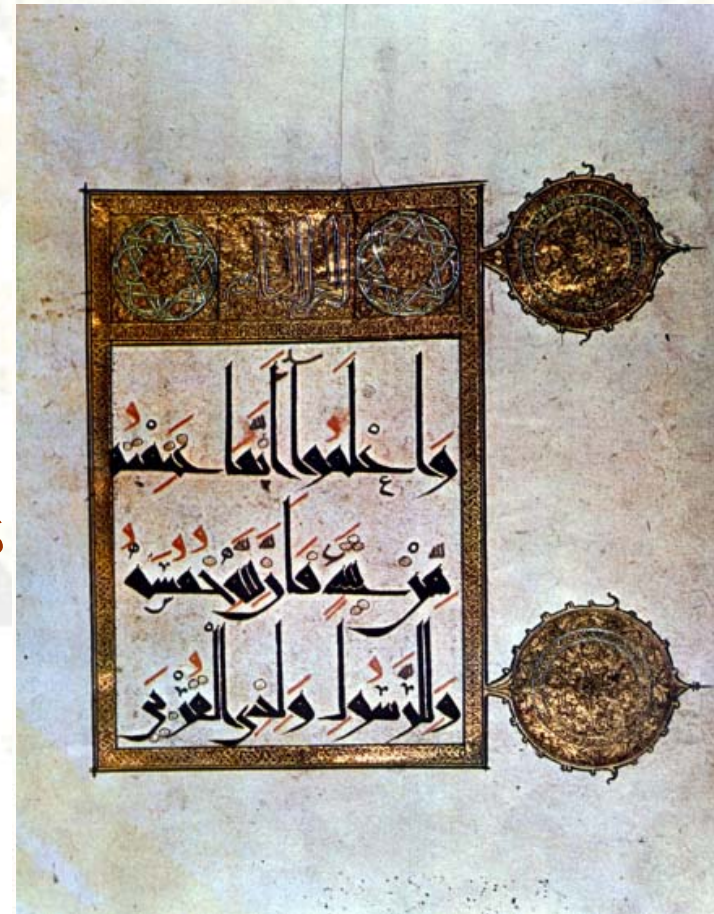 الجز العاشر
وَاعْلَمُوا أَنَّمَا غَنِمْتُمْ
مِّنْ شَيْءٍ فَأَنَّ لِلَّهِ خُمُسَهُ
وَلِلرَّسُولِ وَلِذِي الْقُرْبَى